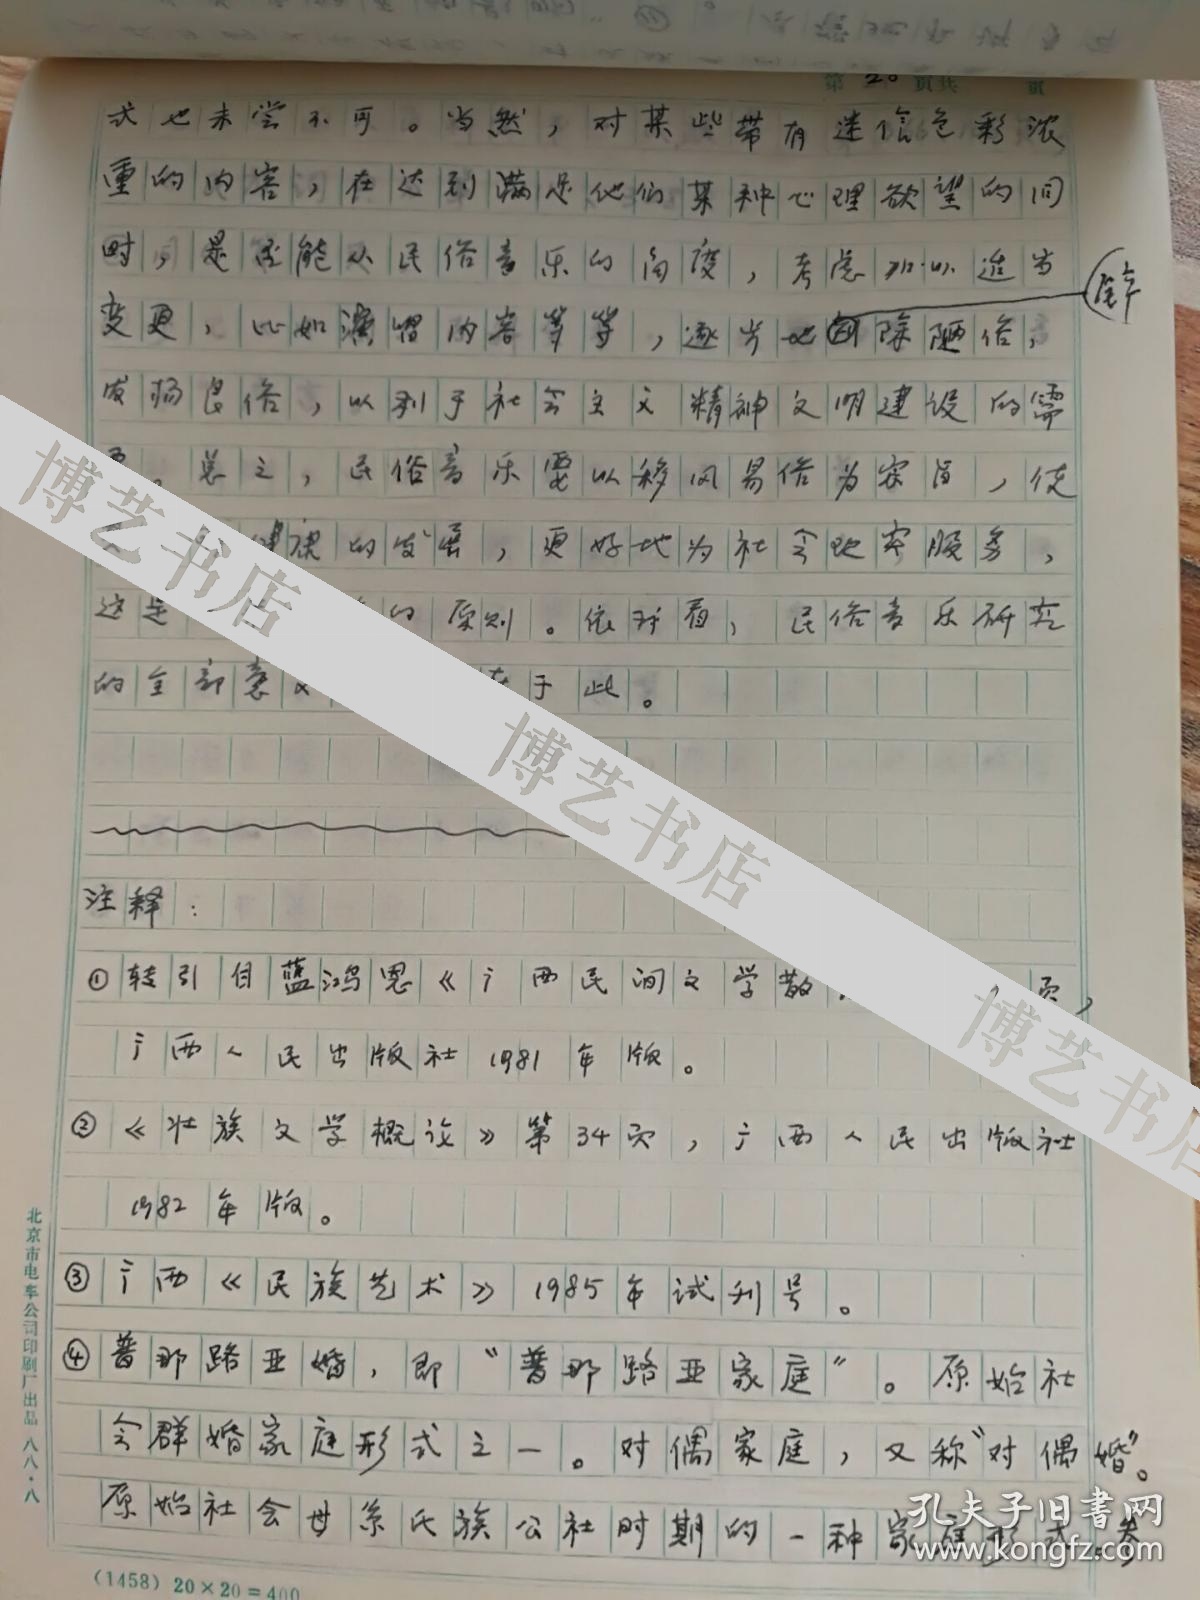 第 20 页共 页
式也未尝不可。当然，对某些带有迷信色彩浓
重的内容，在达到满足他们某种心理欲望的同
时，是否能从民俗音乐的角度，考虑加以适当
变更，比如演唱内容等等，逐步地剔除陋俗，
辞
发扬良俗，以利于社会主义精神文明建设的需
总之，民俗音乐要以移风易俗为宗旨，使
健康的发展，更好地为社会現实服务，
这是 的原则。依我看，民俗音乐研究
的全部意义 在于此。
注释：
①转引自蓝鸿恩《广西民间文学散 页，
广西人民出版社1981年版。
②《壮族文学概论》第34页，广西人民出版社
1982年版。
③广西《民族艺术》1985年试刊号。
④普那路亚婚，即“普那路亚家庭”。原始社
会群婚家庭形式之一。对偶家庭，又称“对偶婚”。
原始社会母系氏族公社时期的一种家庭形式。参
(1458) 20×20=400
北京市电车公司印刷厂出品 八八·八
博艺书店
博艺书店
博艺书店
孔夫子旧书网
www.kongfz.com